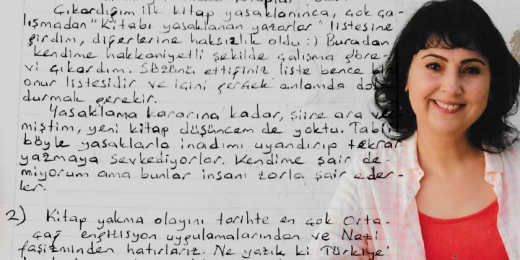 Çıkardığım ilk kitap yasaklanınca, çok ça-
lışmadan "kitabı yasaklanan yazarlar" listesine
girdim, diğerlerine haksızlık oldu :) Buradan
kendime hakkaniyetli şekilde çalışma göre-
vi çıkardım. Sözünü ettiğiniz liste bence bir
onur listesidir ve içini gerçek anlamda dol-
durmak gerekir.
Yasaklama kararına kadar, şiire ara ver-
miştim, yeni kitap düşüncem de yoktu. Tabi
böyle yasaklarla inadımı uyandırıp tekrar
yazmaya sevkediyorlar. Kendime şair de-
miyorum ama bunlar insanı zorla şair eder-
ler.
2) Kitap yakma olayını tarihte en çok Orta-
çağ engizisyon uygulamalarından ve Nazi
faşizminden hatırlarız. Ne yazık ki Türkiye'